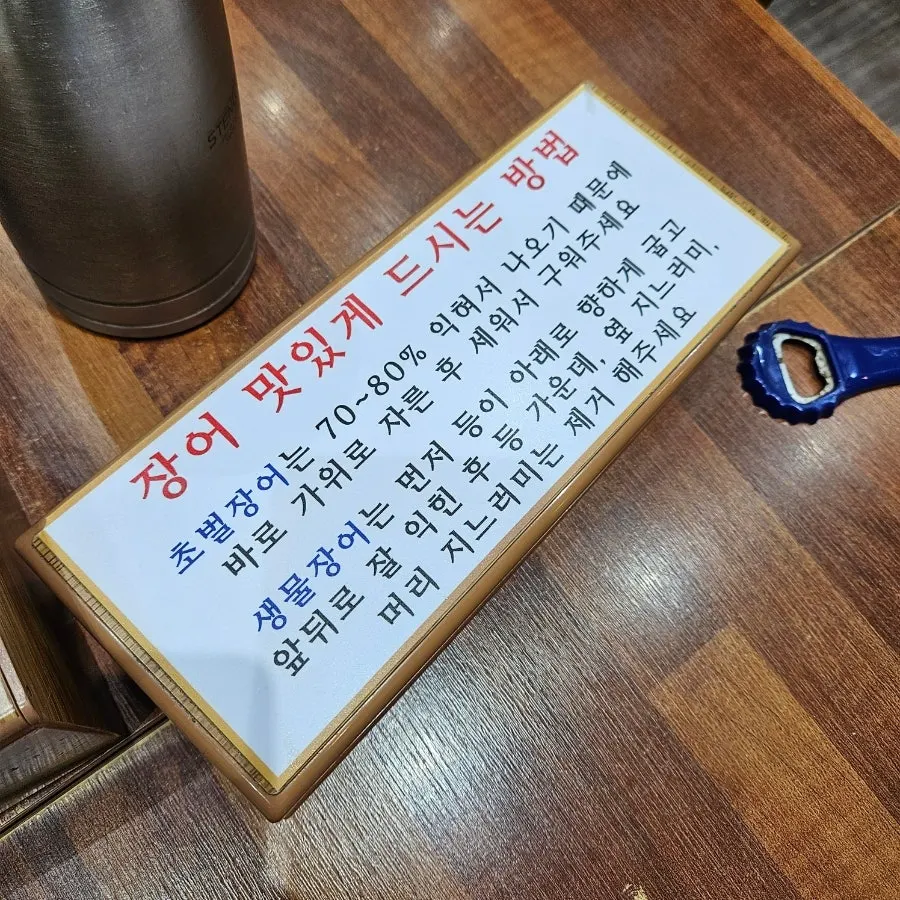 장어 맛있게 드시는 방법
초벌장어는 70~80% 익혀서 나오기 때문에
바로 가위로 자른 후 세워서 구워주세요
생물장어는 먼저 등이 아래로 향하게 굽고
앞뒤로 잘 익힌 후 등 가운데, 옆 지느러미,
머리 지느러미는 제거 해주세요